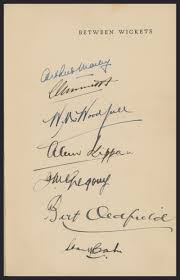 BETWEEN WICKETS
Arthur Mailey
W. M. Woodfull
Alan Kippax
J M Gregory
Bert Oldfield